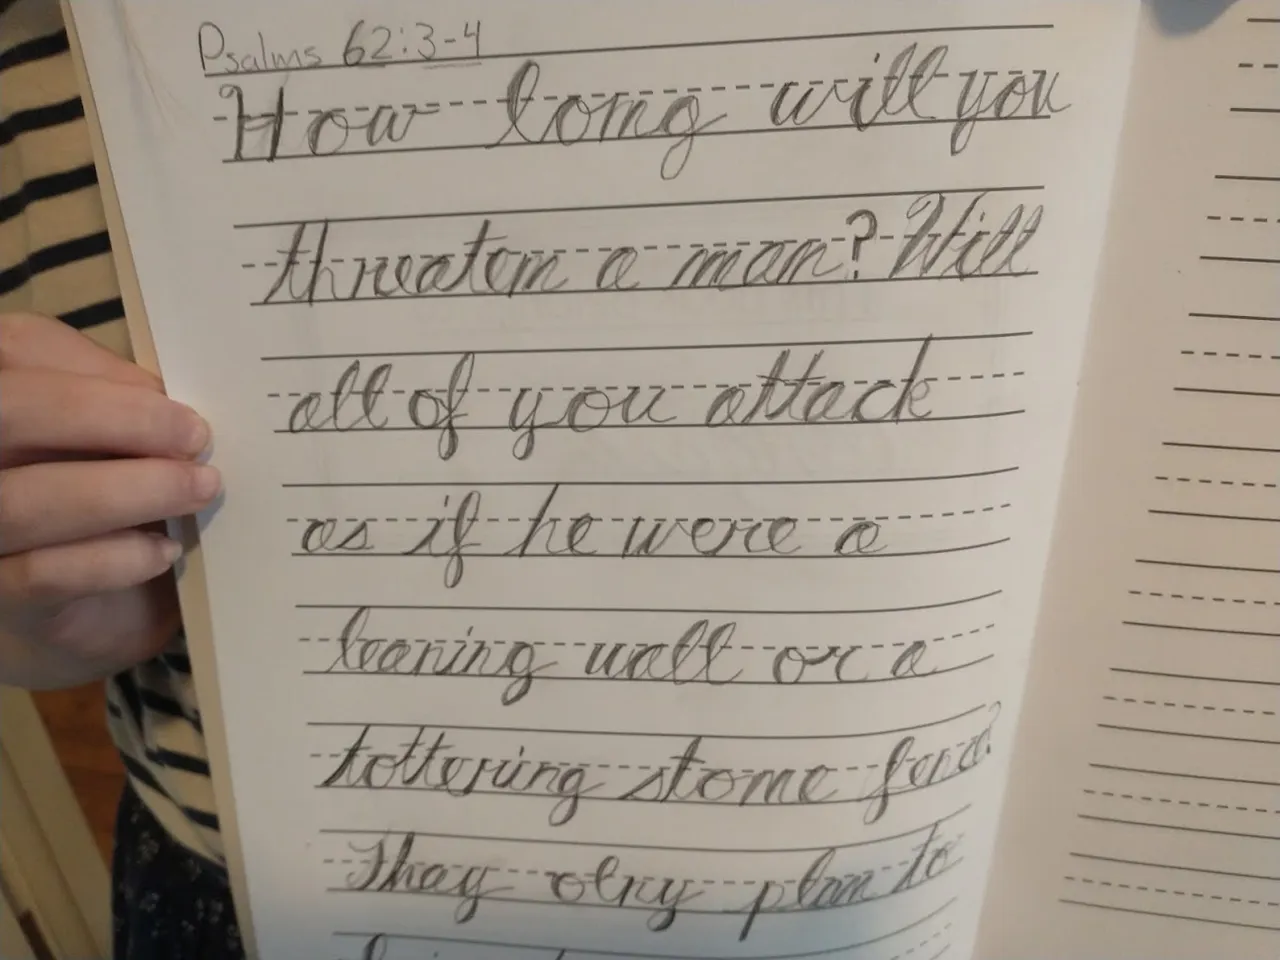 Psalms 62:3-4
How long will you
threaten a man? Will
all of you attack
as if he were a
leaning wall or a
tottering stone fence?
They olny plan to